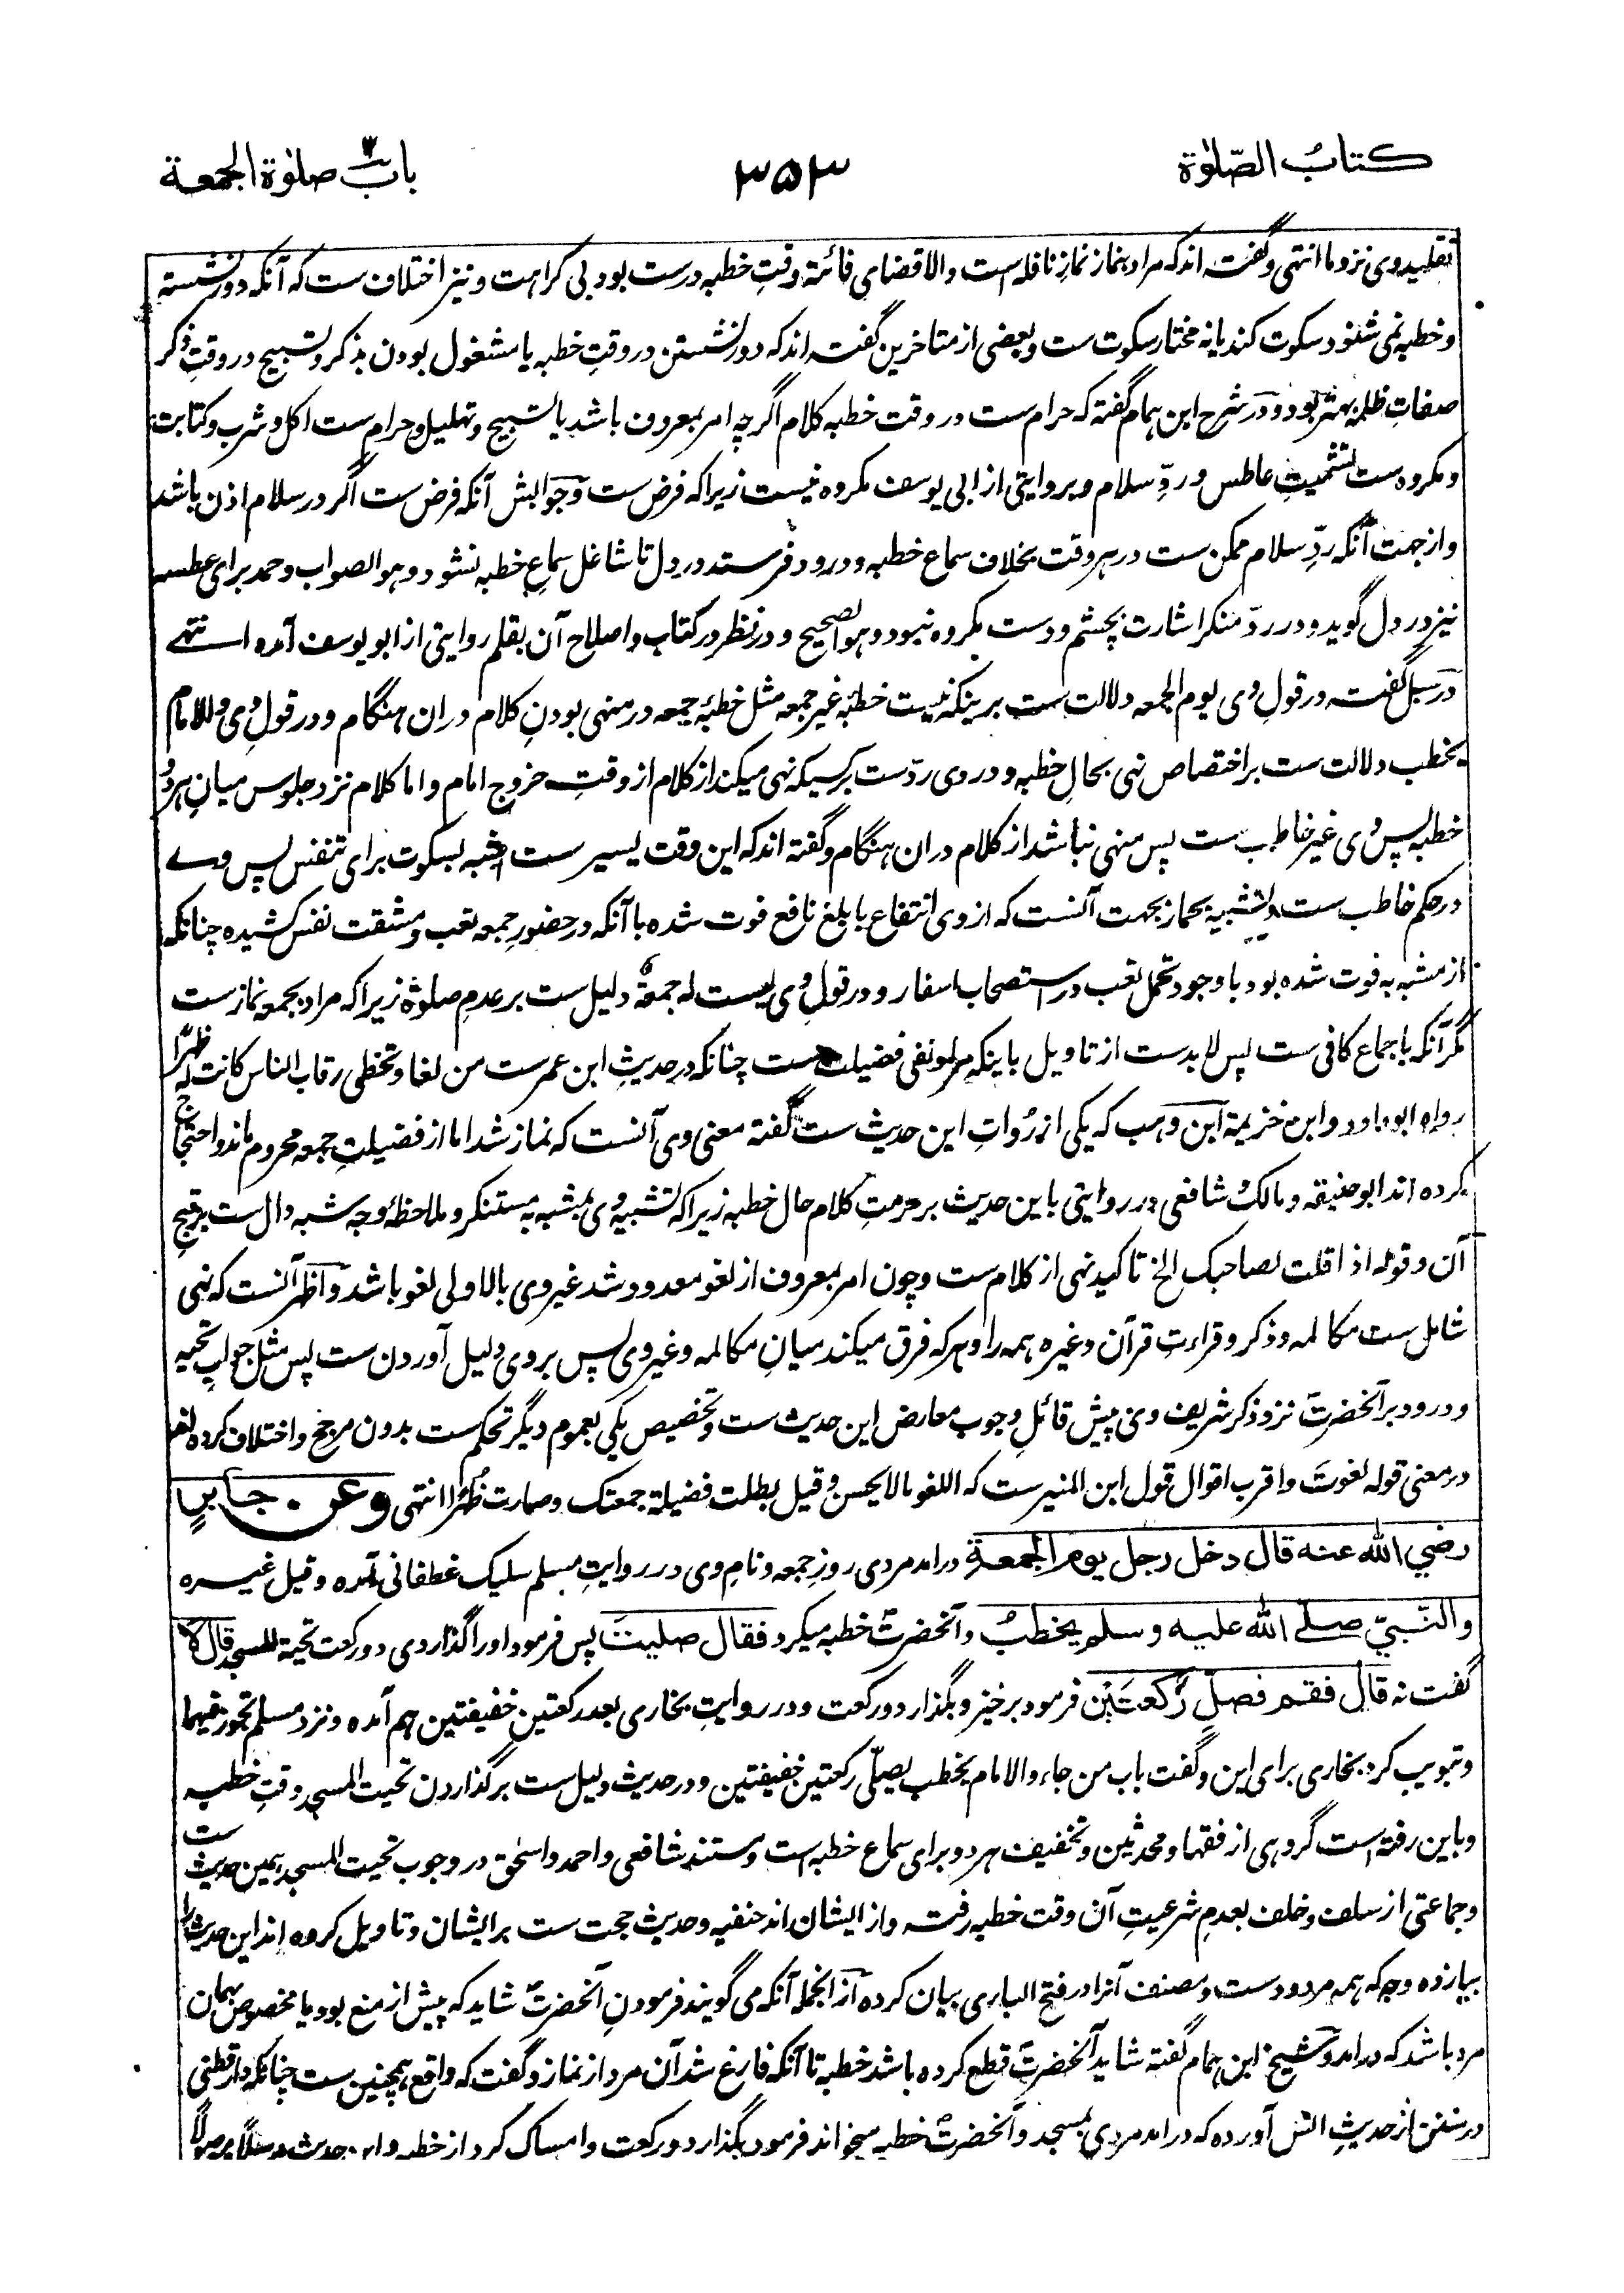 کتاب الصّلوٰة
۳۵۳
باب صلوٰة الجمعة
تقلید وی نزد ما انتهی و گفته اند که مراد بنماز نماز نافله است والا قضای فائتة وقتِ خطبه درست بود بی کراهت و نیز اختلاف ست که آنکه دور نشسته
و خطبه نمی شنود سکوت کند یا نه مختار سکوت ست و بعضی از متاخرین گفته اند که دور نشستن در وقتِ خطبه یا مشغول بودن بذکر و تسبیح در وقتِ ذکر
صفاتِ ظلمه بهتر بود و در شرح ابن همام گفته که حرام ست در وقت خطبه کلام اگرچه امر بمعروف باشد یا تسبیح و تهلیل و حرام ست اکل و شرب و کتابت
و مکروه ست تشمیتِ عاطس و ردِّ سلام و بروایتی از ابی یوسف مکروه نیست زیرا که فرض ست و جوابش آنکه فرض ست اگر در سلام اذن باشد
و از جهت آنکه ردِّ سلام ممکن ست در هر وقت بخلاف سماع خطبه و درود فرستد در دل تا شاغل سماعِ خطبه نشود و هو الصواب و حمد برای عطسه
نیز در دل گوید و در ردّ منکر اشارت بچشم و دست مکروه نبود و هو الصحیح و در نظر در کتاب و اصلاح آن بقلم روایتی از ابو یوسف آمده انتهے
در سبل گفته در قولِ وی یوم الجمعه دلالت ست برینکه نیست خطبۀ غیر جمعه مثل خطبۀ جمعه در منهی بودنِ کلام دران هنگام و در قولِ وی والامام
یخطب دلالت ست بر اختصاص نهی بحالِ خطبه و در وی ردّست بر کسیکه نهی میکند از کلام از وقتِ خروج امام و اما کلام نزد جلوس میانِ هر دو
خطبه پس وی غیر خاطب ست پس منهی نباشد از کلام دران هنگام و گفته اند که این وقت یسیر ست اشبه بسکوت برای تنفس پس وے
در حکم خاطب ست و تشبیه بحمار بجهت آنست که از وی انتفاع بابلغ نافع فوت شده با آنکه در حضورِ جمعه تعب و مشقت نفس کشیده چنانکه
از مشبه به فوت شده بود با وجود تحمل تعب در استصحاب اسفار و در قولِ وی لیست له جمعةٌ دلیل ست بر عدمِ صلوٰة زیرا که مراد بجمعه نماز ست
مگر آنکه باجماع کافی ست پس لابد ست از تاویل باینکه مراد نفی فضیلت ست چنانکه در حدیثِ ابن عمر ست من لغا و تخطی رقاب الناس کانت له ظهرًا
رواه ابوداود و ابن خزیمة ابن وهب که یکی از رُواتِ این حدیث ست گفته معنی وی آنست که نماز شد اما از فضیلتِ جمعه محروم ماند و احتجاج
کرده اند ابو حنیفه و مالک و شافعی در روایتی باین حدیث بر حرمتِ کلام حال خطبه زیرا که تشبیه وی بمشبه به مستنکر و ملاحظۀ وجه شبه دال ست بر قبحِ
آن و قوله اذا قلت لصاحبک الخ تاکید نهی از کلام ست و چون امر بمعروف از لغو معدود شد غیر وی بالاولی لغو باشد و اظهر آنست که نهی
شامل ست مکالمه و ذکر و قراءتِ قرآن وغیره همه را و هر که فرق میکند میانِ مکالمه و غیر وی پس بر وی دلیل آوردن ست پس مثل جوابِ تحیه
و درود بر آنحضرتؐ نزد ذکر شریف وی پیش قائلِ وجوب معارض این حدیث ست و تخصیص یکی بعموم دیگر تحکم ست بدون مرجح و اختلاف کرده اند
در معنی قوله لغوتَ و اقرب اقوال قول ابن المنیر ست که اللغو مالا یحسن و قیل بطلت فضیلة جمعتک و صارت ظُهرًا انتهی وعن جابرٍ
رضي الله عنه قال دخل رجل يوم الجمعة درامد مردی روزِ جمعه و نامِ وی در روایتِ مسلم سلیک غطفانی آمده و قیل غیره
والنّبيّ صلے الله عليه وسلم يخطبُ و آنحضرتؐ خطبه میکرد فقال صليتَ پس فرمود او را گذاردی دو رکعت تحیة المسجد قال لا
گفت نه قال فقم فصلِّ ركعتَيْن فرمود برخیز و بگذار دو رکعت و در روایتِ بخاری بعد رکعتین خفیفتین هم آمده و نزد مسلم تجوز فیهما
و تبویب کرد بخاری برای این و گفت باب من جاء والامام یخطب یصلّی رکعتین خفیفتین و در حدیث دلیل ست بر گذاردن تحیت المسجد وقتِ خطبه
و باین رفته است گروهی از فقها و محدثین و تخفیف هر دو برای سماع خطبه است و مستند شافعی و احمد و اسحٰق در وجوب تحیت المسجد همین حدیث ست
و جماعتی از سلف و خلف بعدمِ شرعیتِ آن وقت خطبه رفته و از ایشان اند حنفیه و حدیث حجت ست بر ایشان و تاویل کرده اند این حدیث را
بیازده وجه که همه مردود ست و مصنف آنرا در فتح الباری بیان کرده از انجمله آنکه می گویند فرمودنِ آنحضرتؐ شاید که پیش از منع بود یا مخصوص بهمان
مرد باشد که درامد و شیخ ابن همام گفته شاید آنحضرتؐ قطع کرده باشد خطبه تا آنکه فارغ شد آن مرد از نماز و گفت که واقع همچنین ست چنانکه دارقطنی
در سنن از حدیثِ انس آورده که درامد مردی بمسجد و آنحضرتؐ خطبه میخواند فرمود بگذار دو رکعت و امساک کرد از خطبه و